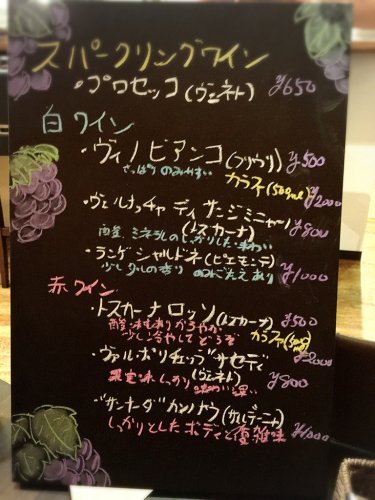 スパークリングワイン
・プロセッコ(ヴェネト) ¥650
白ワイン
・ヴィノ ビアンコ(フリウリ) ¥500
さっぱり のみやすい カラファ(500ml) ¥2000
・ヴェルナッチャ ディ サンジミニャーノ
(トスカーナ) ¥800
酸 ミネラルのしっかりした味わい
・ランゲ シャルドネ(ピエモンテ) ¥1000
少し 少しの香り のみごたえあり
赤ワイン
・トスカーナ ロッソ(トスカーナ) ¥500
酸味もあり かろやか カラファ(500ml)
少し冷やして どうぞ ¥2000
・ヴァルポリチェッラ サセディ
(ヴェネト) ¥800
果実味しっかり 味わい深い
・カンナウ(サルデーニャ) ¥1000
しっかりとした ボディと複雑味